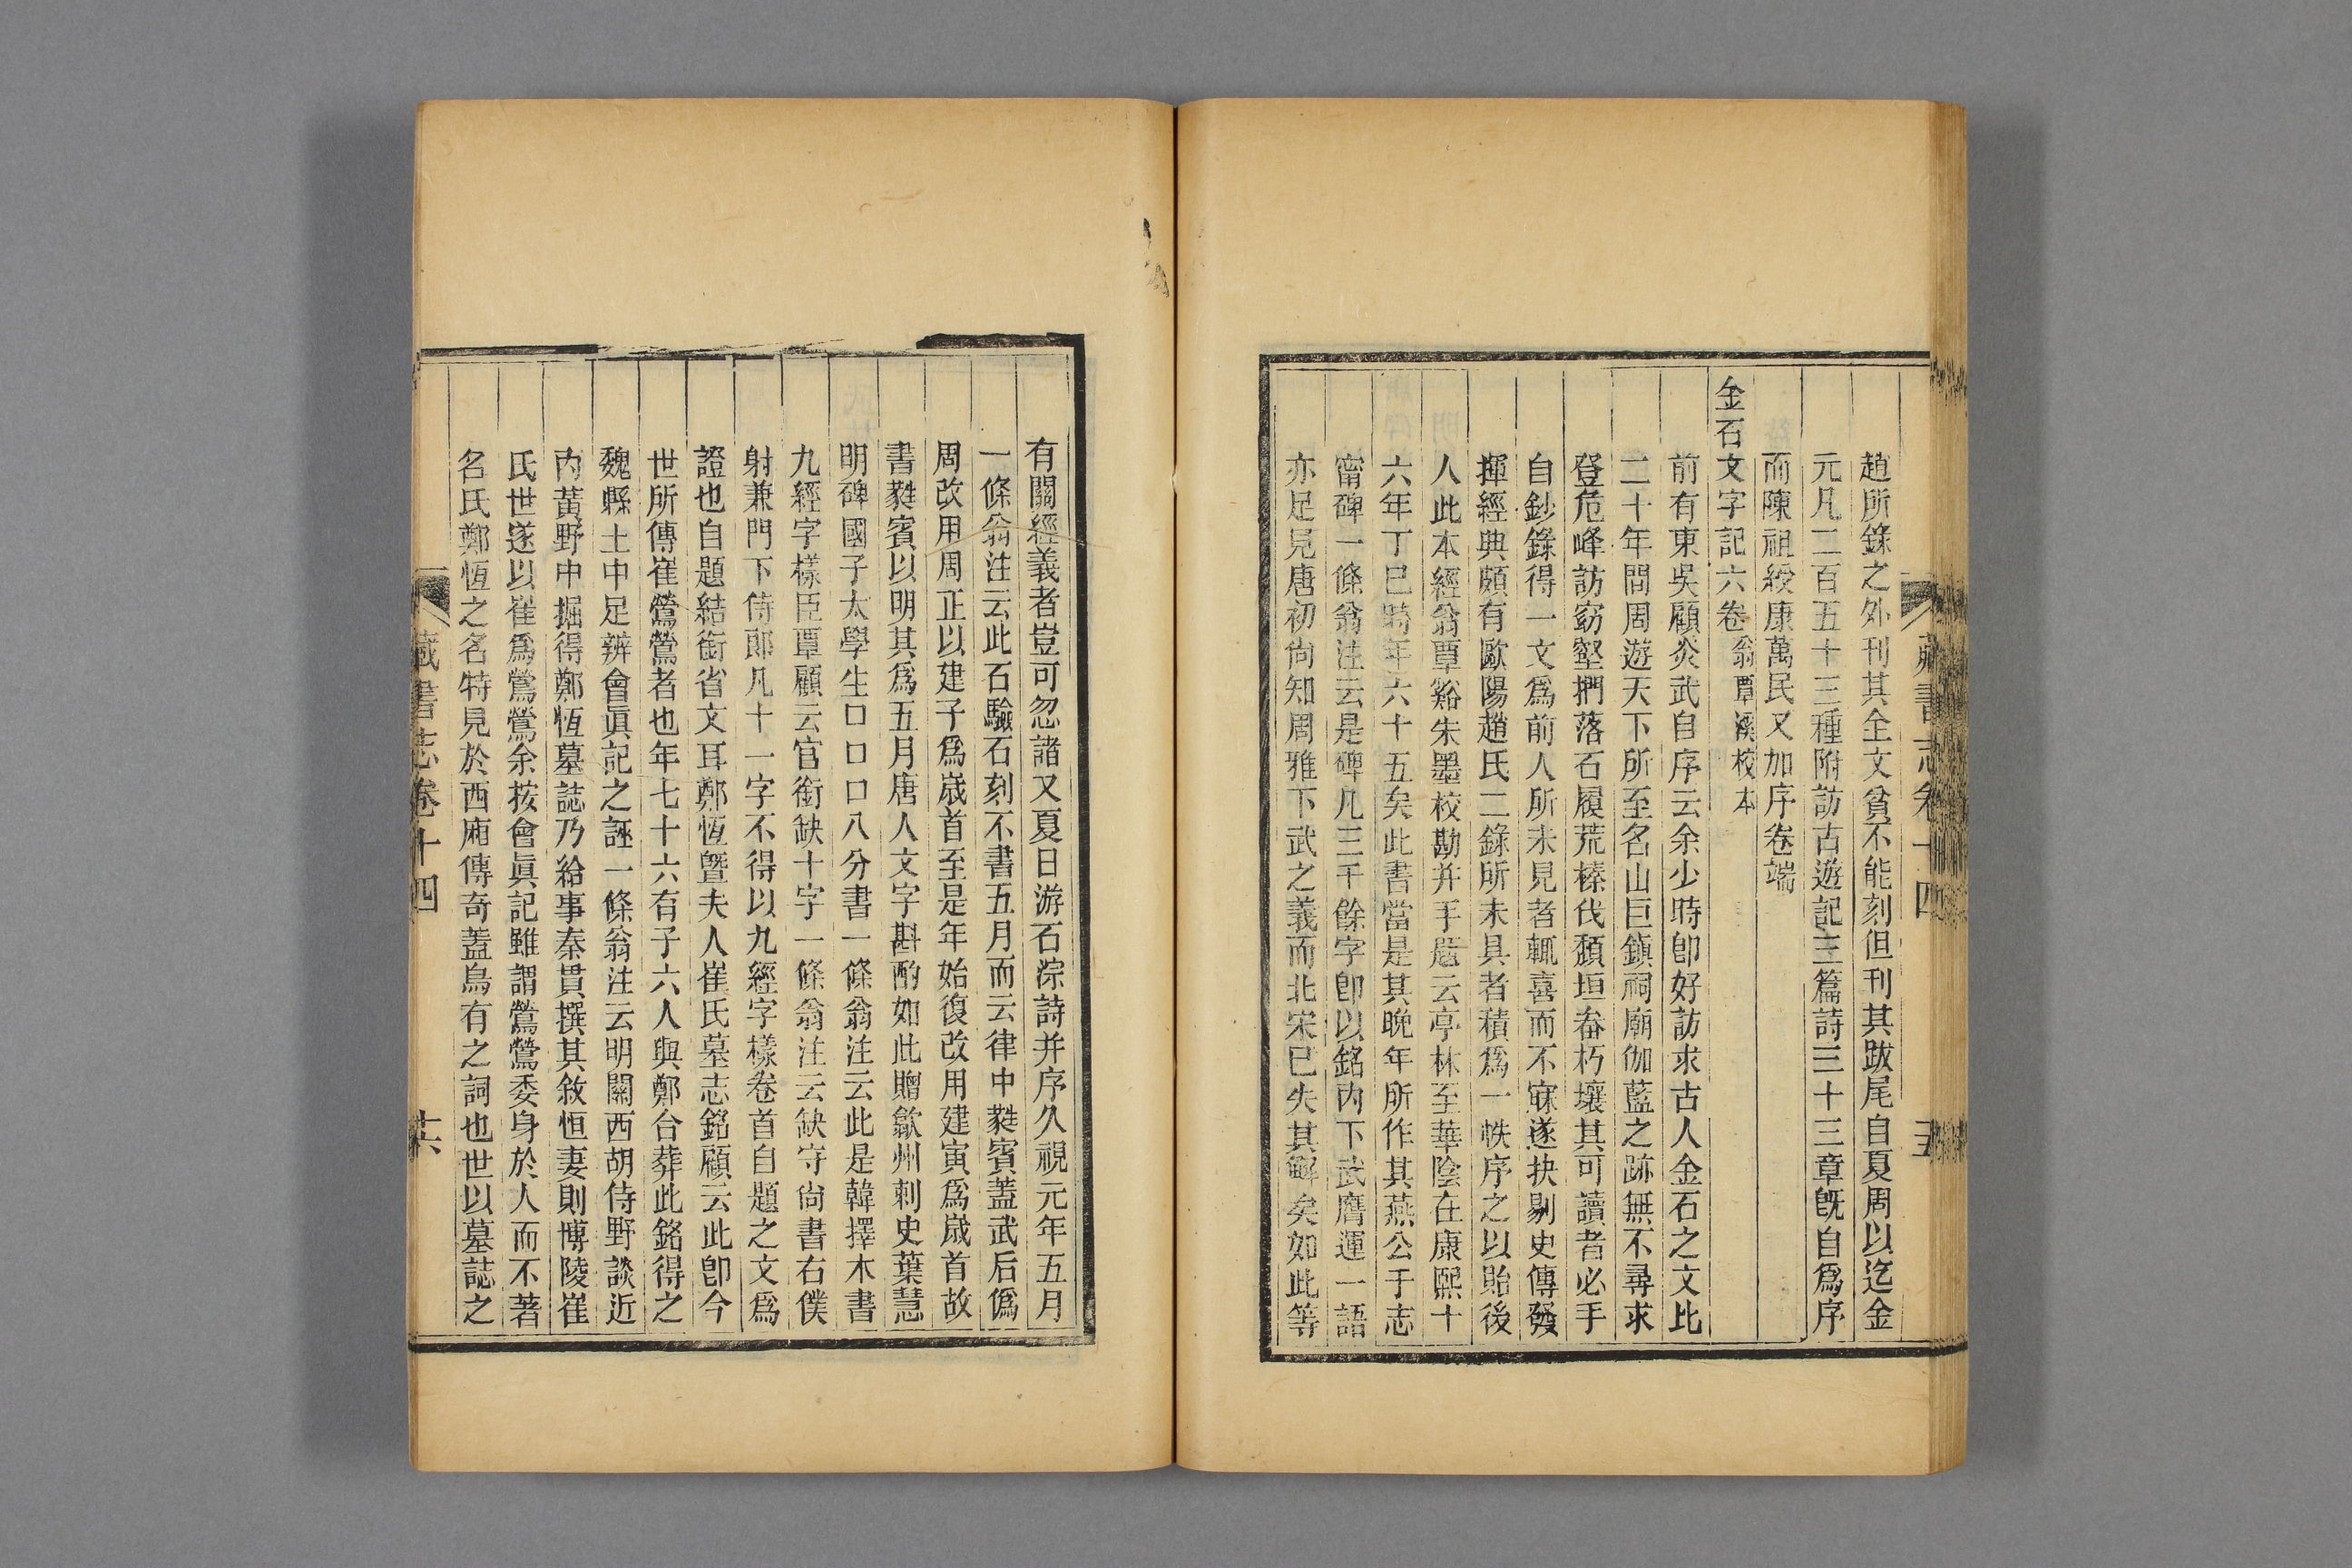 藏書志卷十四
趙所錄之外刊其全文貧不能刻但刊其跋尾自夏周以迄金
元凡二百五十三種附訪古遊記三篇詩三十三章旣自爲序
而陳祖綬康萬民又加序卷端
金石文字記六卷 翁覃溪校本
前有東吳顧炎武自序云余少時卽好訪求古人金石之文比
二十年間周遊天下所至名山巨鎭祠廟伽藍之跡無不尋求
登危峰訪窈壑捫落石履荒榛伐頹垣畚朽壤其可讀者必手
自鈔錄得一文爲前人所未見者輒喜而不寐遂抉剔史傳發
揮經典頗有歐陽趙氏二錄所未具者積爲一帙序之以貽後
人此本經翁覃谿朱墨校勘幷手題云亭林至華陰在康熙十
六年丁巳時年六十五矣此書當是其晚年所作其燕公于志
甯碑一條翁注云是碑凡三千餘字卽以銘內下武膺運一語
亦足見唐初尙知周雅下武之義而北宋已失其解矣如此等
有關經義者豈可忽諸又夏日游石淙詩并序久視元年五月
一條翁注云此石驗石刻不書五月而云律中蕤賓蓋武后僞
周改用周正以建子爲歲首至是年始復改用建寅爲歲首故
書蕤賓以明其爲五月唐人文字斟酌如此贈歙州刺史葉慧
明碑國子太學生口口口八分書一條翁注云此是韓擇木書
九經字樣臣覃顧云官銜缺十字一條翁注云缺守尙書右僕
射兼門下侍郎凡十一字不得以九經字樣卷首自題之文爲
證也自題結銜省文耳鄭恆曁夫人崔氏墓志銘顧云此卽今
世所傳崔鶯鶯者也年七十六有子六人與鄭合葬此銘得之
魏縣土中足辨會眞記之誣一條翁注云明關西胡侍野談近
內黃野中掘得鄭恆墓誌乃給事秦貫撰其敘恒妻則博陵崔
氏世遂以崔爲鶯鶯余按會眞記雖謂鶯鶯委身於人而不著
名氏鄭恆之名特見於西廂傳奇蓋烏有之詞也世以墓誌之
藏書志卷十四
十六